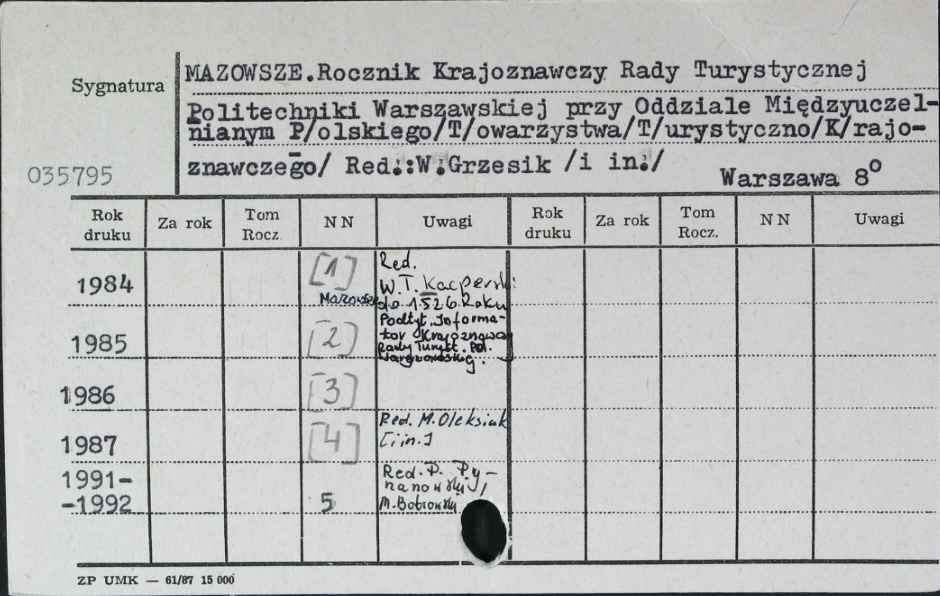 Sygnatura
MAZOWSZE.Rocznik Krajoznawczy Rady Turystycznej
Politechniki Warszawskiej przy Oddziale Międzyuczel-
nianym P/olskiego/T/owarzystwa/T/urystyczno/K/rajo-
znawczego/ Red.:W.Grzesik /i in./
035795
Warszawa 8°
Rok druku Za rok Tom Rocz. NN Uwagi Rok druku Za rok Tom Rocz. NN Uwagi
1984 [1] Red.
W.T. Kacperski
Mazowsze do 1526 Roku
Podtyt. Informa-
1985 [2] tor Krajoznawczy
Rady Turyst. Pol.
Warszawskiej.
1986 [3]
Red. M. Oleksiuk
1987 [4] [i in.]
1991- Red. P.
-1992 5 M. Bobrowski
ZP UMK — 61/87 15 000